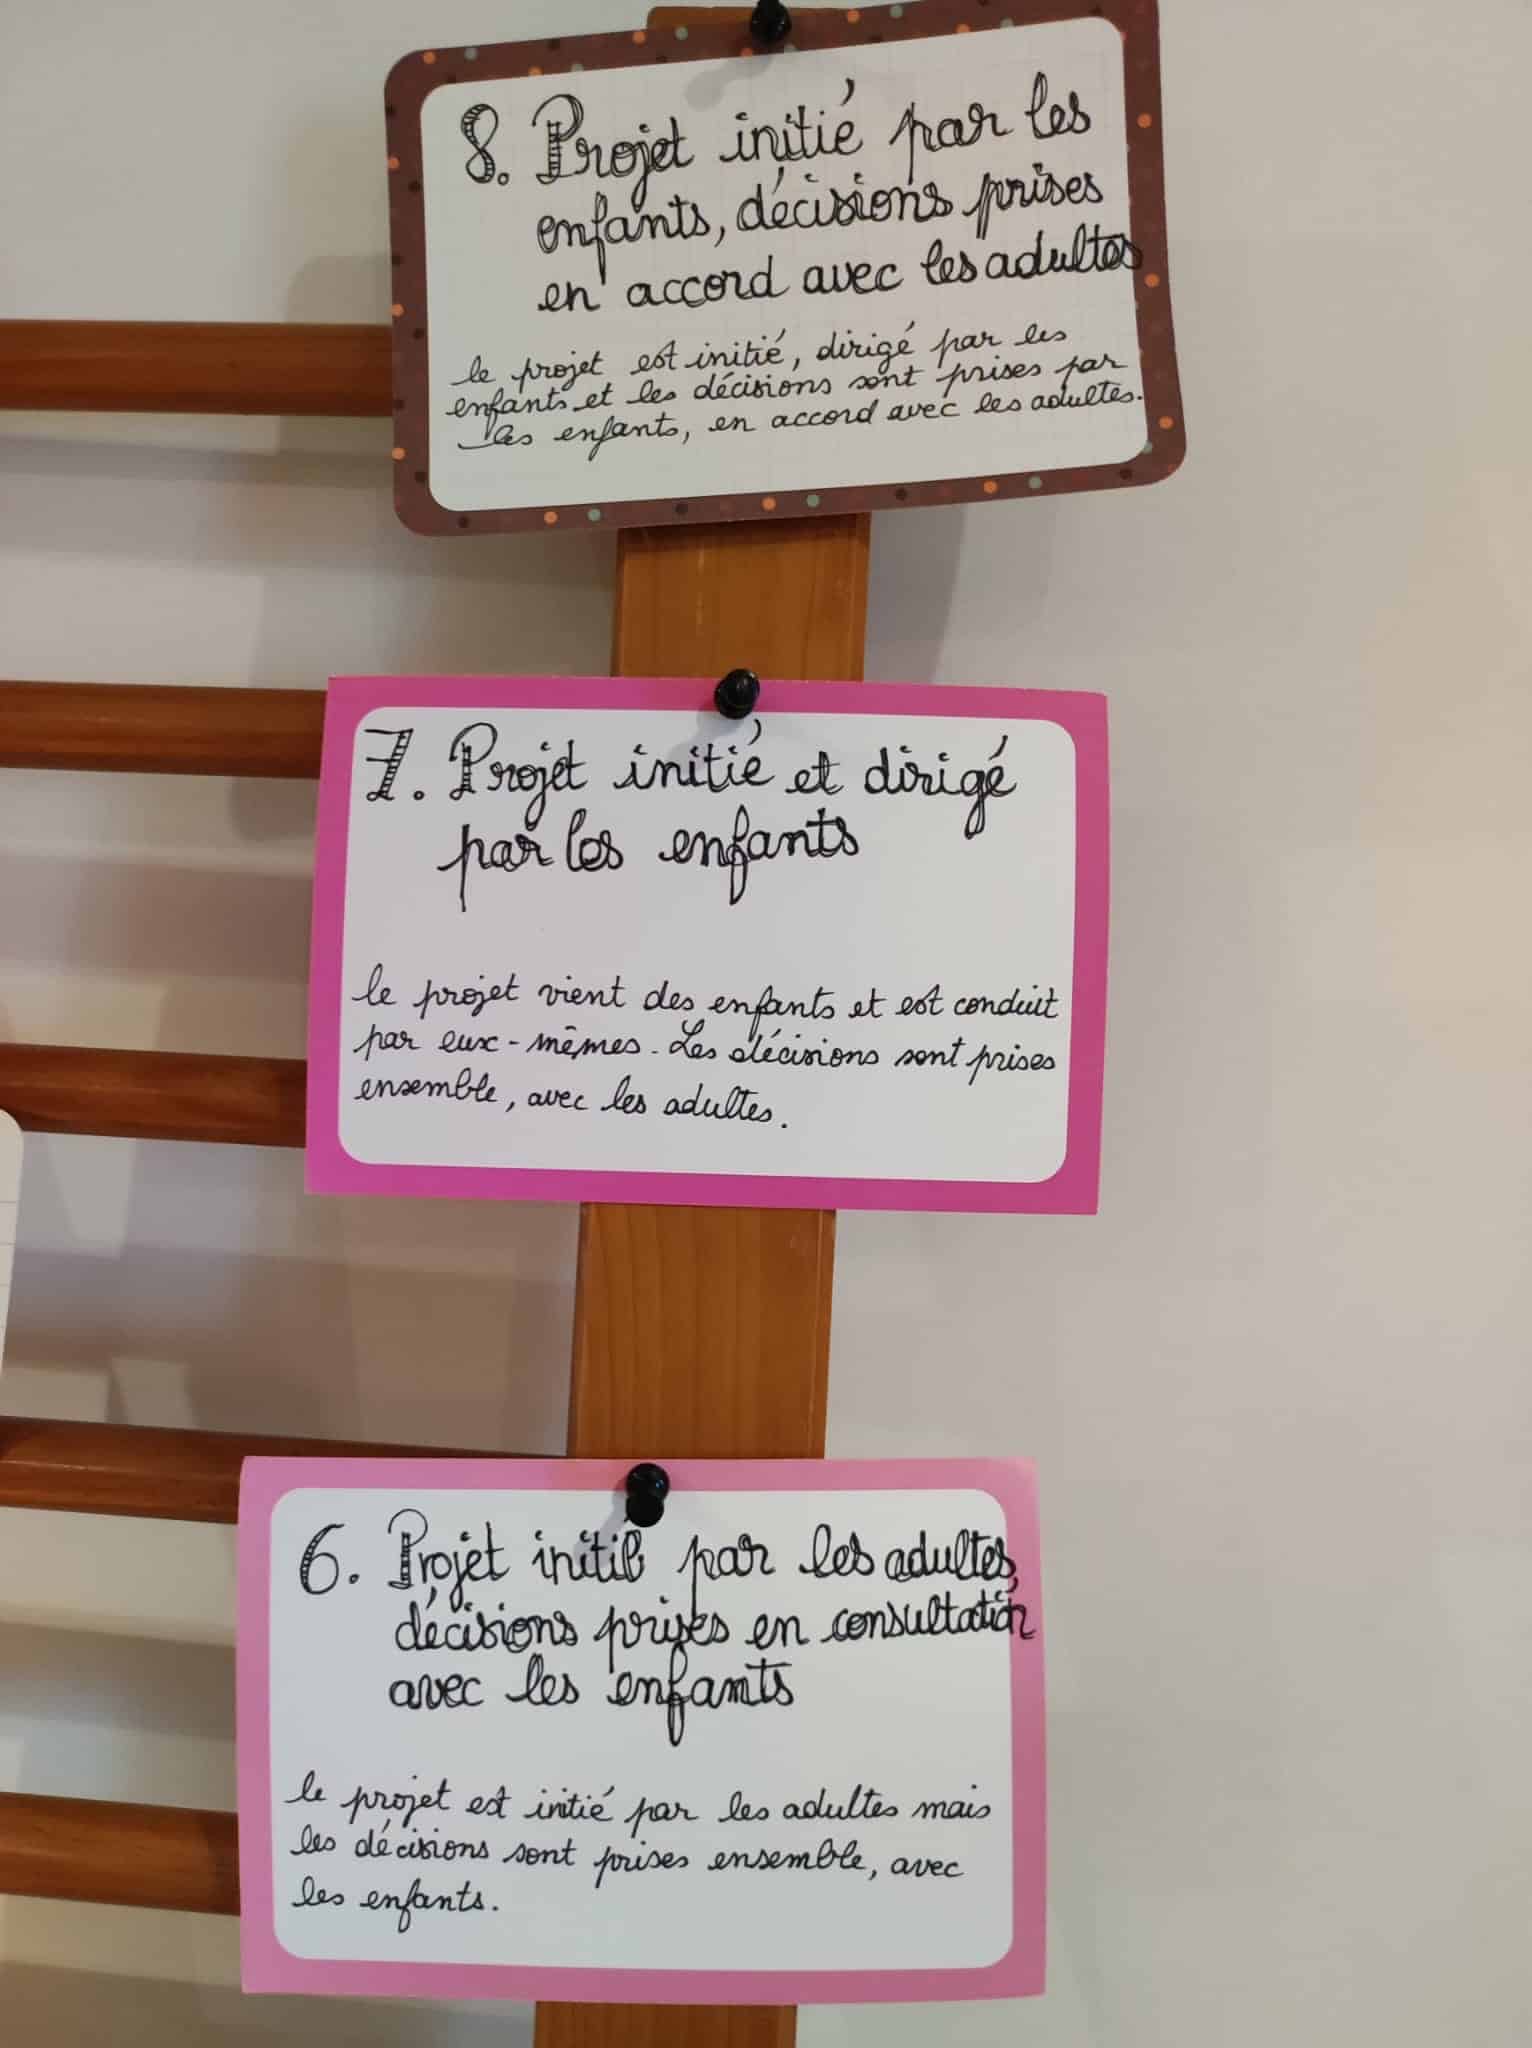 8. Projet initié par les
enfants, décisions prises
en accord avec les adultes
le projet est initié, dirigé par les
enfants et les décisions sont prises par
les enfants, en accord avec les adultes.
7. Projet initié et dirigé
par les enfants
le projet vient des enfants et est conduit
par eux-mêmes. Les décisions sont prises
ensemble, avec les adultes.
6. Projet initié par les adultes,
décisions prises en consultation
avec les enfants
le projet est initié par les adultes mais
les décisions sont prises ensemble, avec
les enfants.